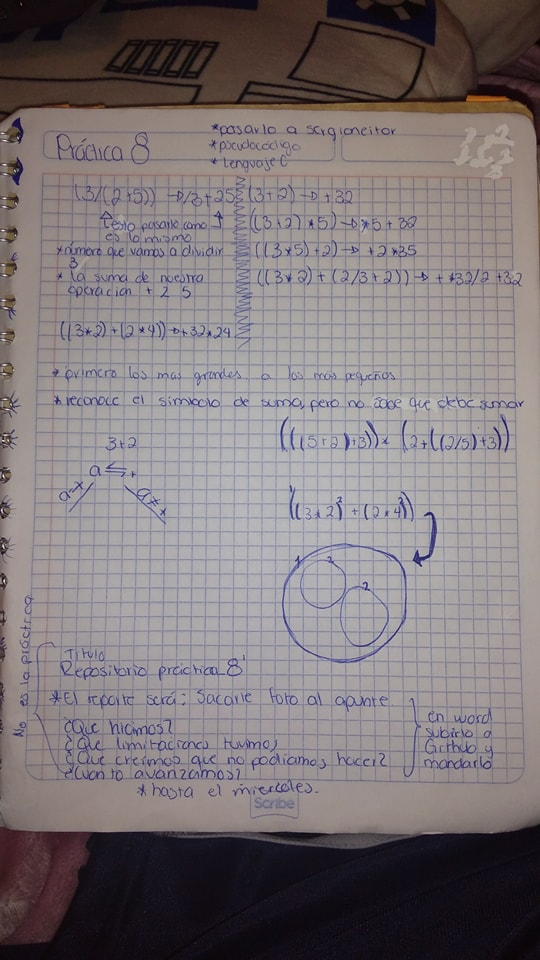 Práctica 8
*pasarlo a sargioneitor
*pseudocódigo
*lenguaje C
(3/(2+5)) → /3+25
esto pasarle como
es lo mismo
*número que vamos a dividir
3
* la suma de nuestra
operación + 2 5
((3*2)+(2*4)) → +32*24
(3+2) → +32
((3+2)*5) → *5+32
((3*5)+2) → +2*35
((3*2)+(2/3+2)) → +*32/2+32
*primero los mas grandes a los mas pequeños
*reconoce el simbolo de suma, pero no sabe que debe sumar
3+2
a ⇆ +
a*
a**
(((5+2)+3))*(2+((2/5)+3))
1((3*2)²+(2*4)³)
1
2
2
No es la práctica
Titulo
Repositorio práctica 8'
*El reporte será: Sacarle foto al apunte
¿Que hicimos?
¿Que limitaciones tuvimos
¿Que creimos que no podiamos hacer?
¿Cuanto avanzamos?
en word
subirlo a
Github y
mandarlo
*hasta el miercoles.
Scribe